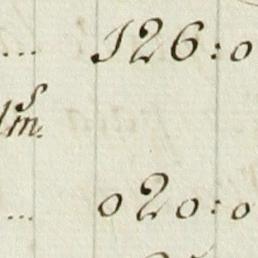 ... 126:0
... 020:0